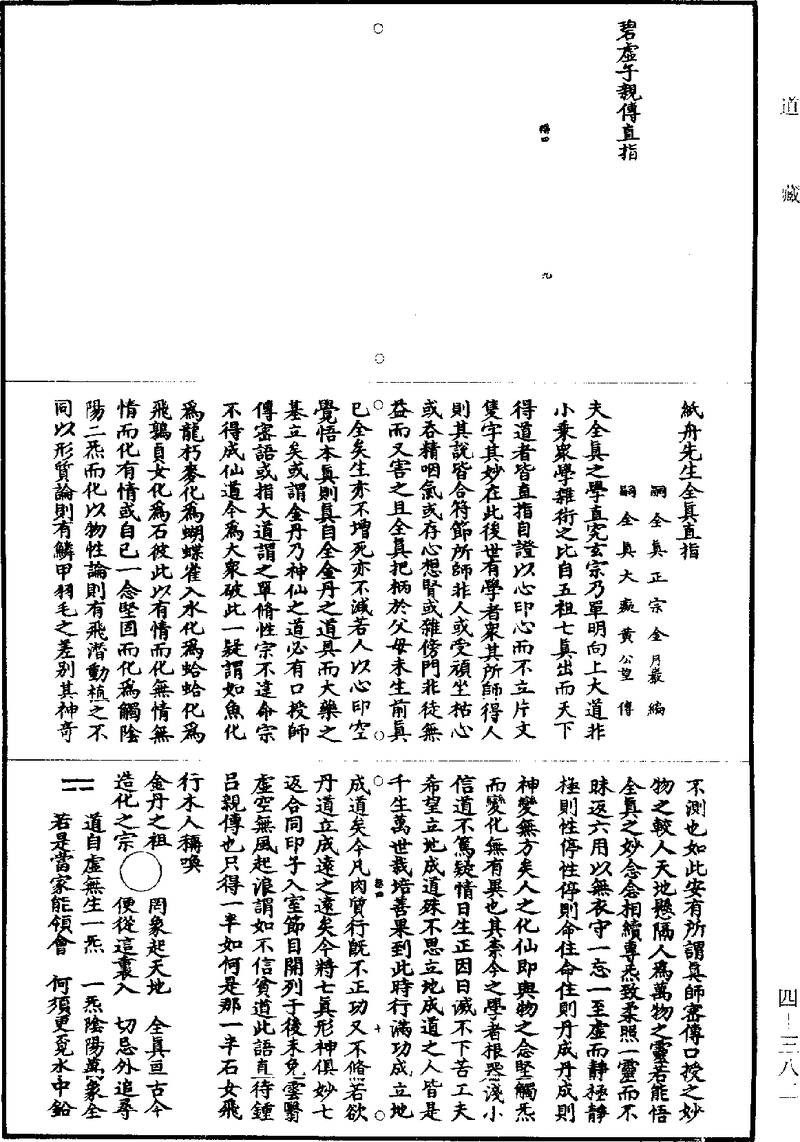 道藏
碧虛子親傳直指
紙舟先生全真直指
嗣全真正宗金月巖編
嗣全真大癡黃公望傳
夫全真之學直究玄宗乃單明向上大道非
小乘衆學雜術之比自五祖七真出而天下
得道者皆直指自證以心印心而不立片文
隻字其妙在此後世有學者衆其所師得人
則其說皆合符節所師非人或受頑坐枯心
或吞精咽氣或存心想腎或雜傍門非徒無
益而又害之且全真把柄於父母未生前真
已全矣生亦不增死亦不減若人以心印空
覺悟本真則真自全金丹之道具而大藥之
基立矣或謂金丹乃神仙之道必有口授師
傳密語或指大道謂之單脩性宗不達命宗
不得成仙道今為大衆破此一疑謂如魚化
為龍朽麥化為蝴蝶雀入水化為蛤蛤化為
飛鶉貞女化為石彼此以有情而化無情無
情而化有情或自已一念堅固而化為觸陰
陽二炁而化以物性論則有飛潛動植之不
同以形質論則有鱗甲羽毛之差別其神奇
不測也如此安有所謂真師密傳口授之妙
物之較人天地懸隔人為萬物之靈若能悟
全真之妙念念相續專炁致柔照一靈而不
昧返六用以無衣守一忘一至虛而靜極靜
極則性停性停則命住命住則丹成丹成則
神變無方矣人之化仙即與物之念堅觸炁
而變化無有異也其柰今之學者根器淺小
信道不篤疑情日生正因日減不下苦工夫
希望立地成道殊不思立地成道之人皆是
千生萬世栽培善果到此時行滿功成立地
成道矣今凡肉質行既不正功又不脩若欲
丹道立成遠之遠矣今將七真形神俱妙七
返合同印子入室節目開列于後未免雲翳
虛空無風起浪謂如不信貧道此語直待鍾
呂親傳也只得一半如何是那一半石女飛
行木人稱喚
金丹之祖 罔象起天地 全真亘古今
造化之宗 便從這裏入 切忌外追尋
道自虛無生一炁 一炁陰陽萬象全
若是當家能領會 何須更覓水中鉛
四-三八二